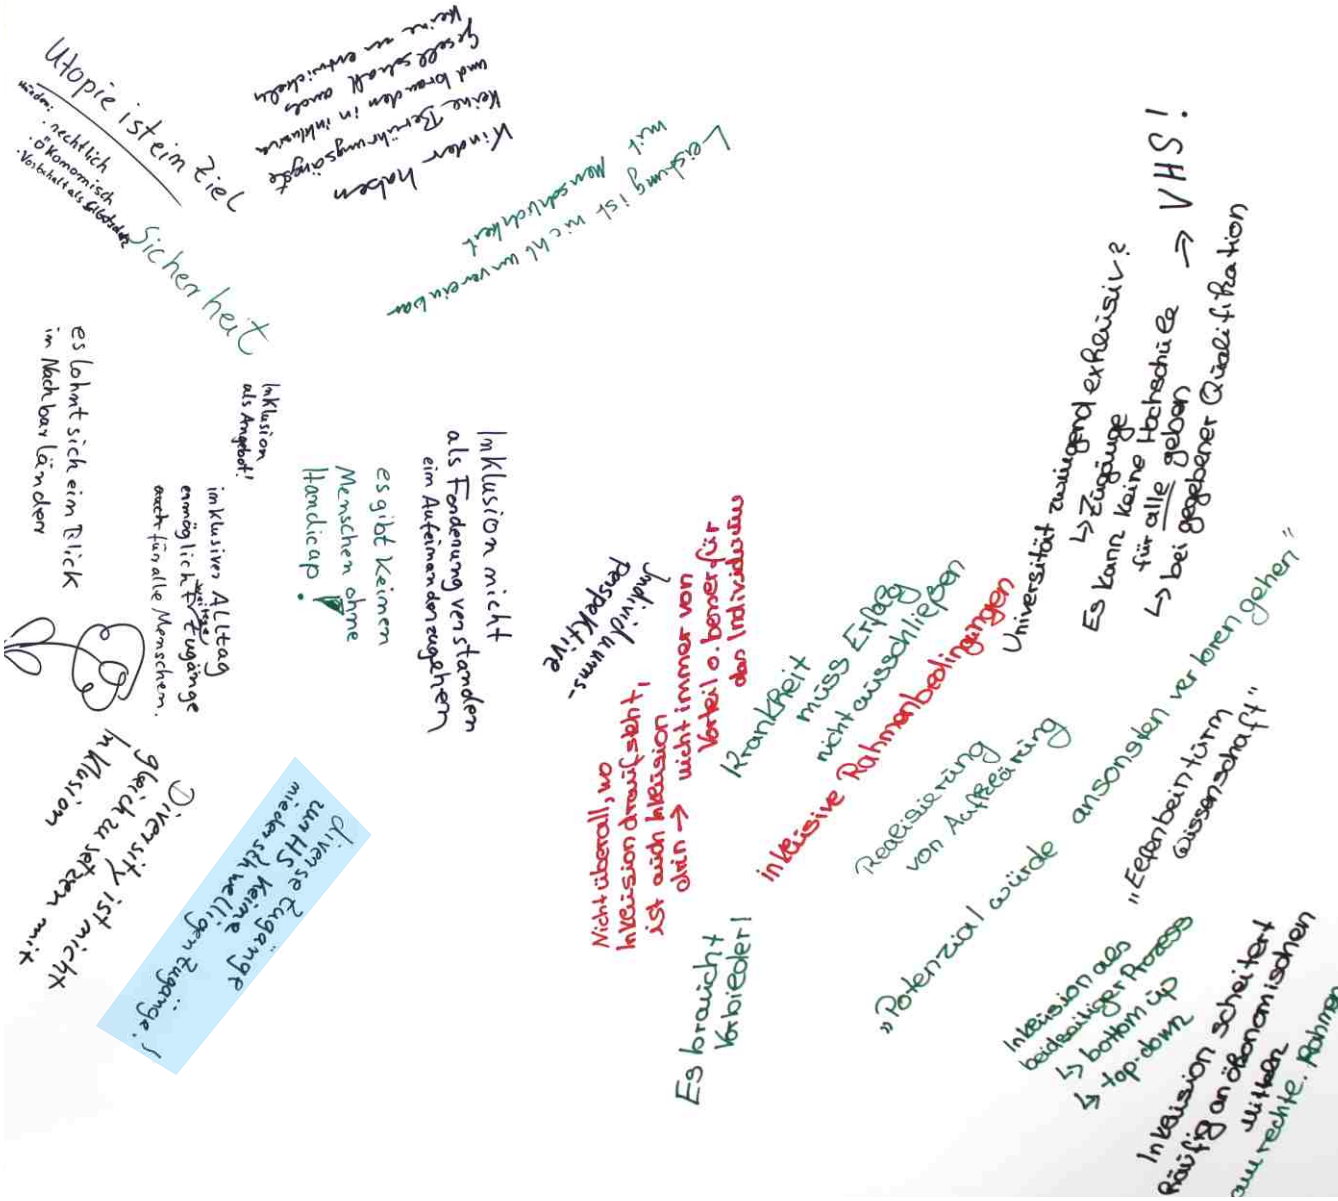 Utopie ist ein Ziel
Hürden:
· rechtlich
· ökonomisch
· Vorbehalt als Selbstschutz
Kinder haben
keine Berührungsängste
und brauchen in inklusiver
Gesellschaft auch
keine zu entwickeln
Leistung ist nicht unvereinbar
mit Menschlichkeit
Sicherheit
es lohnt sich ein Blick
im Nachbarländer
Inklusion
als Angebot!
inklusiver Alltag
ermöglicht weitere Zugänge
auch für alle Menschen.
es gibt keinen
Menschen ohne
Handicap!
Inklusion nicht
als Forderung verstanden
ein Aufeinanderzugehen
Individuums-
perspektive
Diversity ist nicht
gleich zu setzen mit
Inklusion
diverse Zugänge
zur HS keine
niederschwelligen Zugänge!
Nicht überall, wo
Inklusion draufsteht,
ist auch Inklusion
drin → nicht immer von
Vorteil o. besser für
das Individuum
Krankheit
muss Erfolg
nicht ausschließen
inklusive Rahmenbedingungen
Universität zwingend exklusiv?
↳ Zugänge
Es kann keine Hochschule
für alle geben → VHS!
↳ bei gegebener Qualifikation
Realisierung
von Aufklärung
"Potenzial würde ansonsten verloren gehen"
"Elfenbeinturm
Wissenschaft"
Es braucht
Vorbilder!
Inklusion als
beidseitiger Prozess
↳ bottom up
↳ top-down
Inklusion scheitert
häufig an ökonomischen
Mitteln
rechte. Rahmen